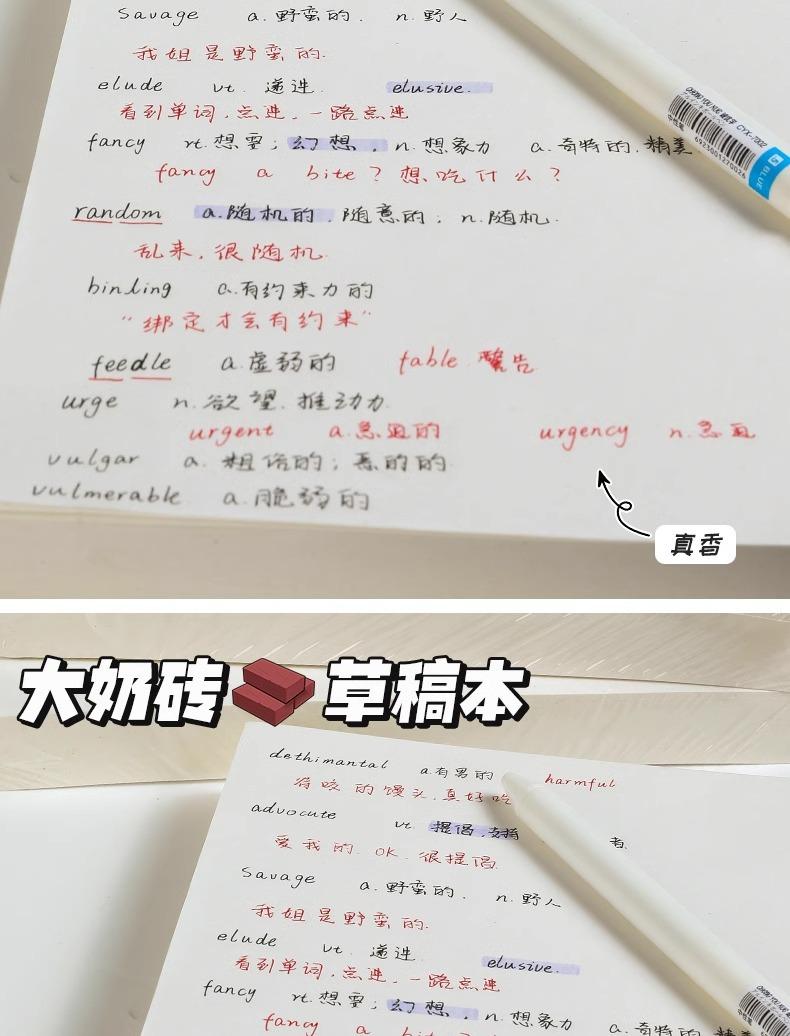 Savage a.野蛮的. n.野人
我姐是野蛮的.
elude vt. 逃避. elusive.
看到单词,点进,一路点进
fancy vt.想要; 幻想, n.想象力 a.奇特的.精美
fancy a bite? 想吃什么?
random a.随机的.随意的; n.随机.
乱来,很随机.
binding a.有约束力的
“绑定才会有约束”
feedle a.虚弱的 fable 警告
urge n.欲望.推动力
urgent a.急迫的 urgency n.急迫
vulgar a. 粗俗的;
vulmerable a.脆弱的
真香
CYX-7002
BLUE
6923001270026
大奶砖 草稿本
dethimantal a.有男的 harmful
的馒头.真好吃
advocute vt. 提倡,支持 者.
爱我的. OK. 很提倡.
Savage a.野蛮的. n.野人
我姐是野蛮的.
elude vt. 逃避. elusive.
看到单词,点进,一路点进
fancy vt.想要; 幻想, n.想象力 a.奇特的.精美
fancy a